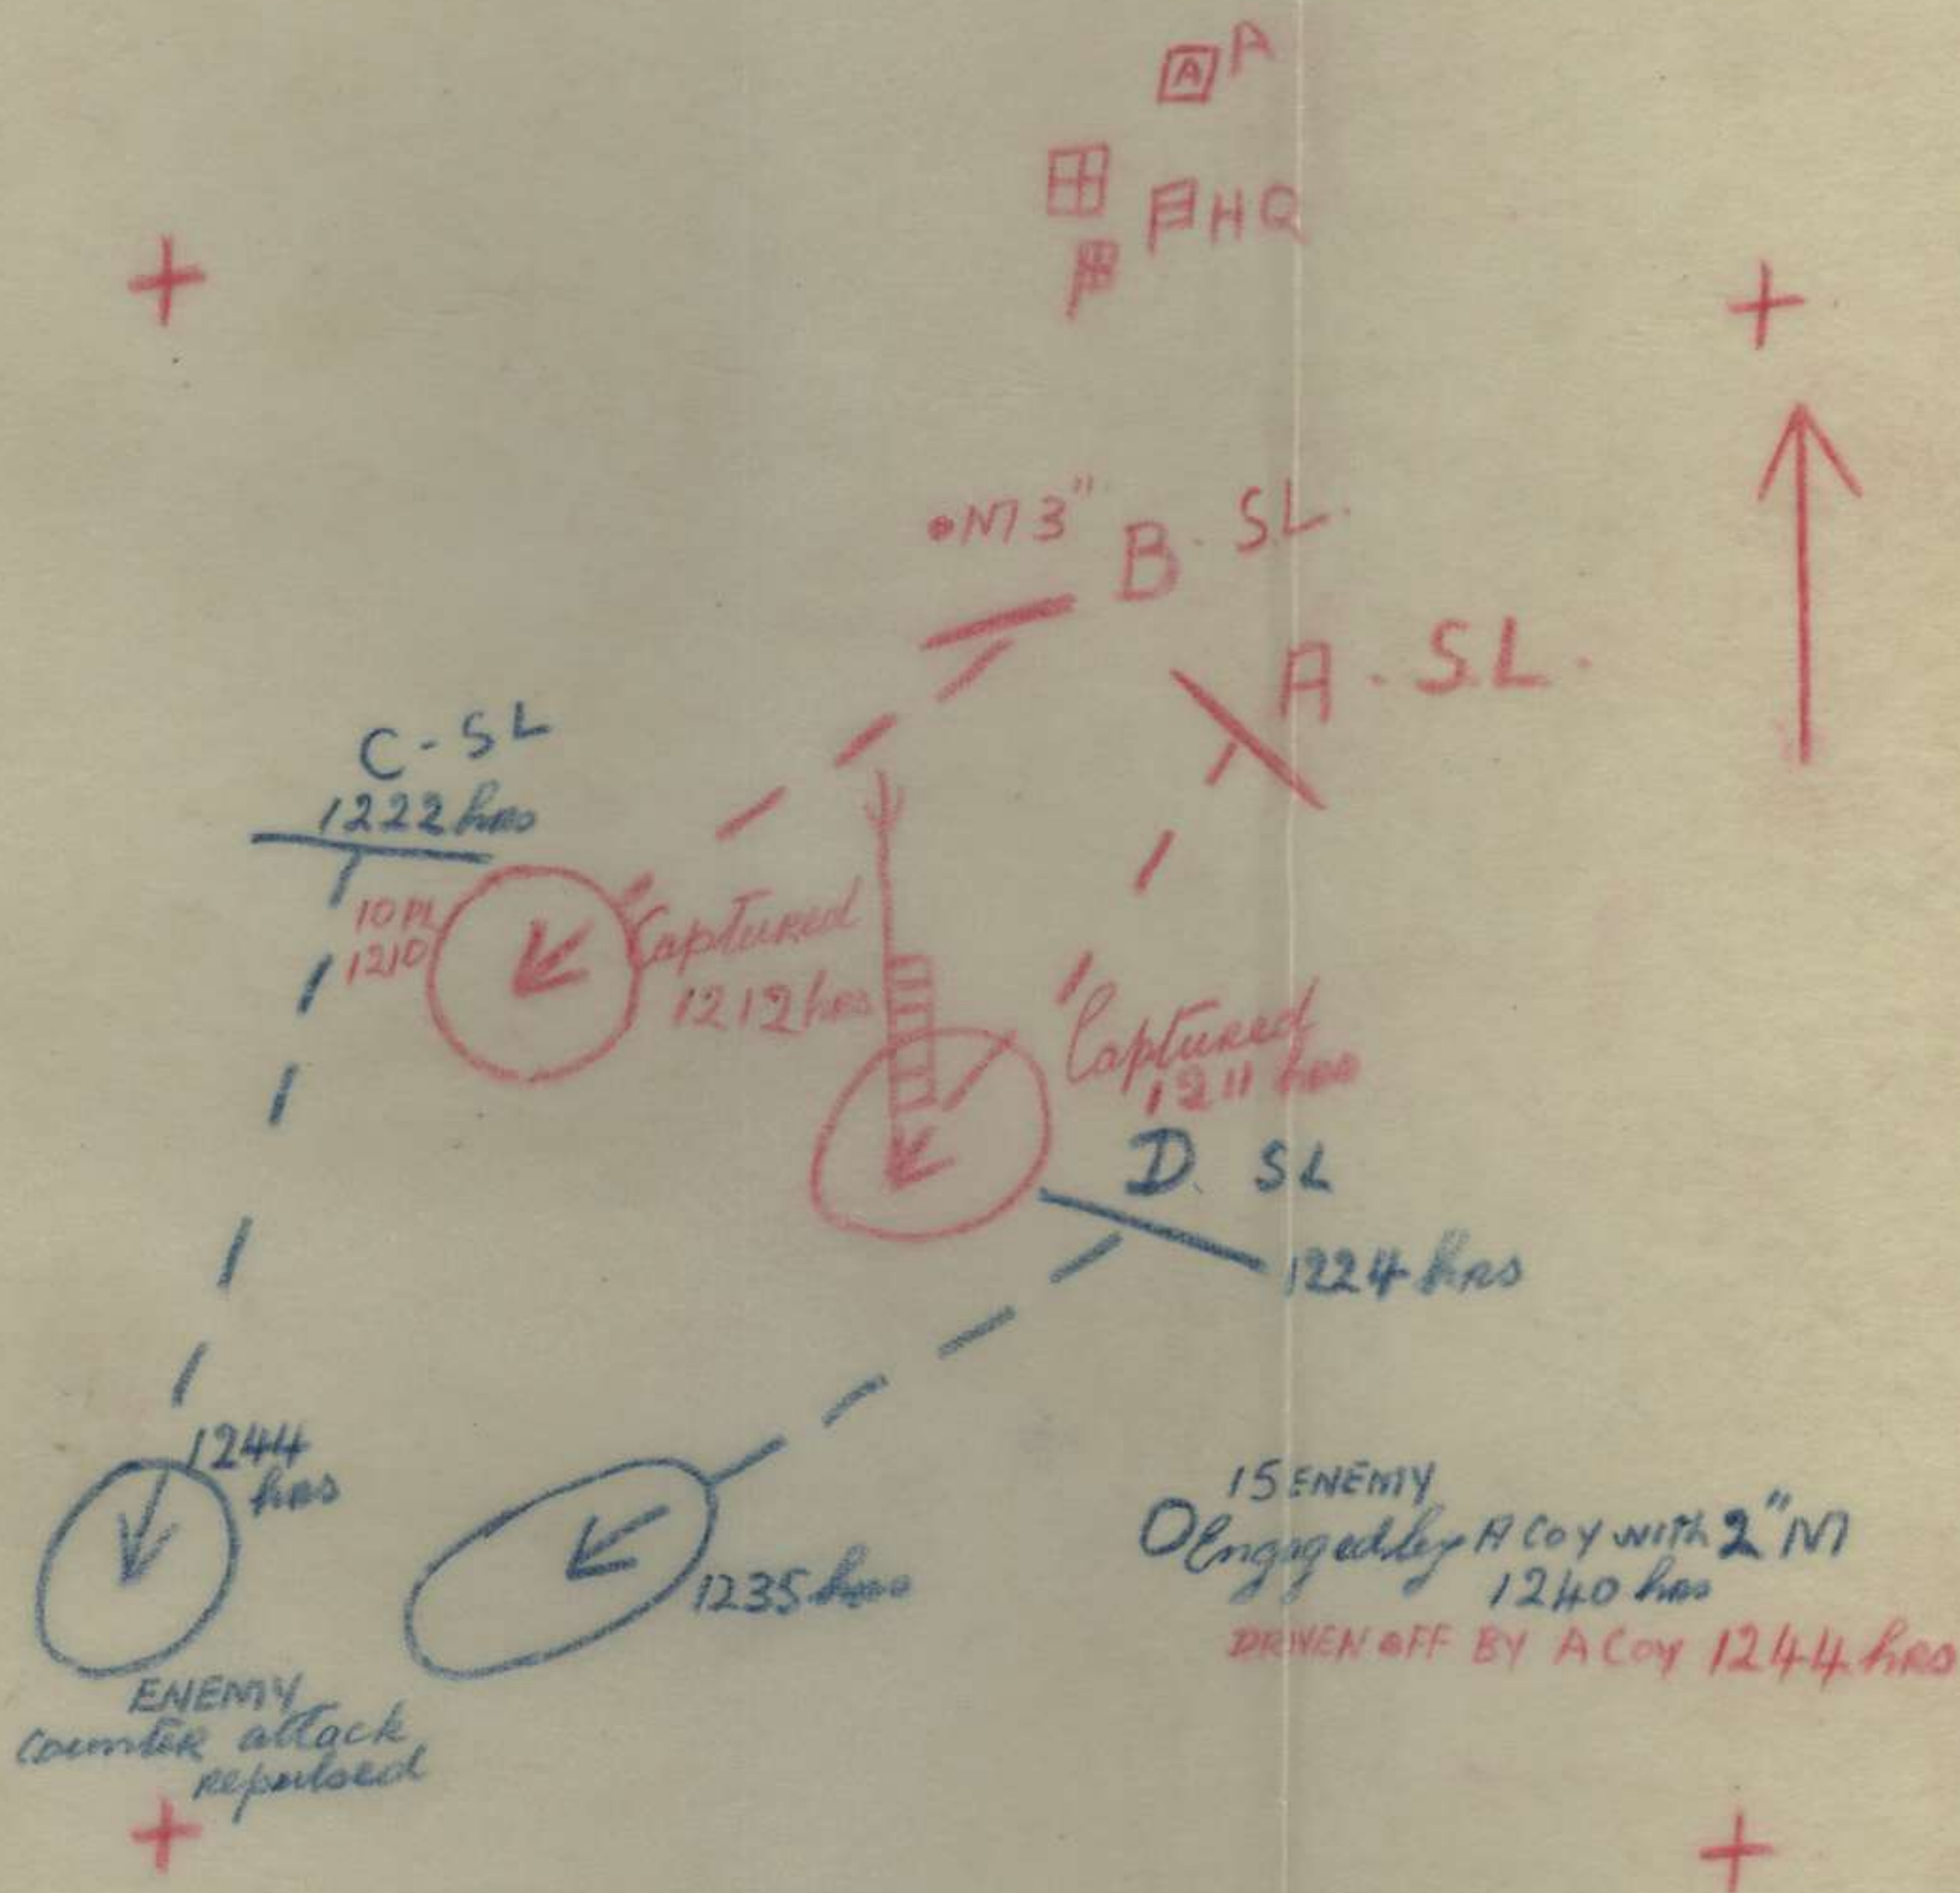 A A
HQ
M 3"
B. SL.
A. SL.
C - SL
1222 hrs
10 PL
1210
Captured
1212 hrs
Captured
1211 hrs
D. SL
1224 hrs
1244
hrs
1235 hrs
15 ENEMY
Engaged by A Coy with 2" M
1240 hrs
DRIVEN OFF BY A Coy 1244 hrs
ENEMY
counter attack
repulsed